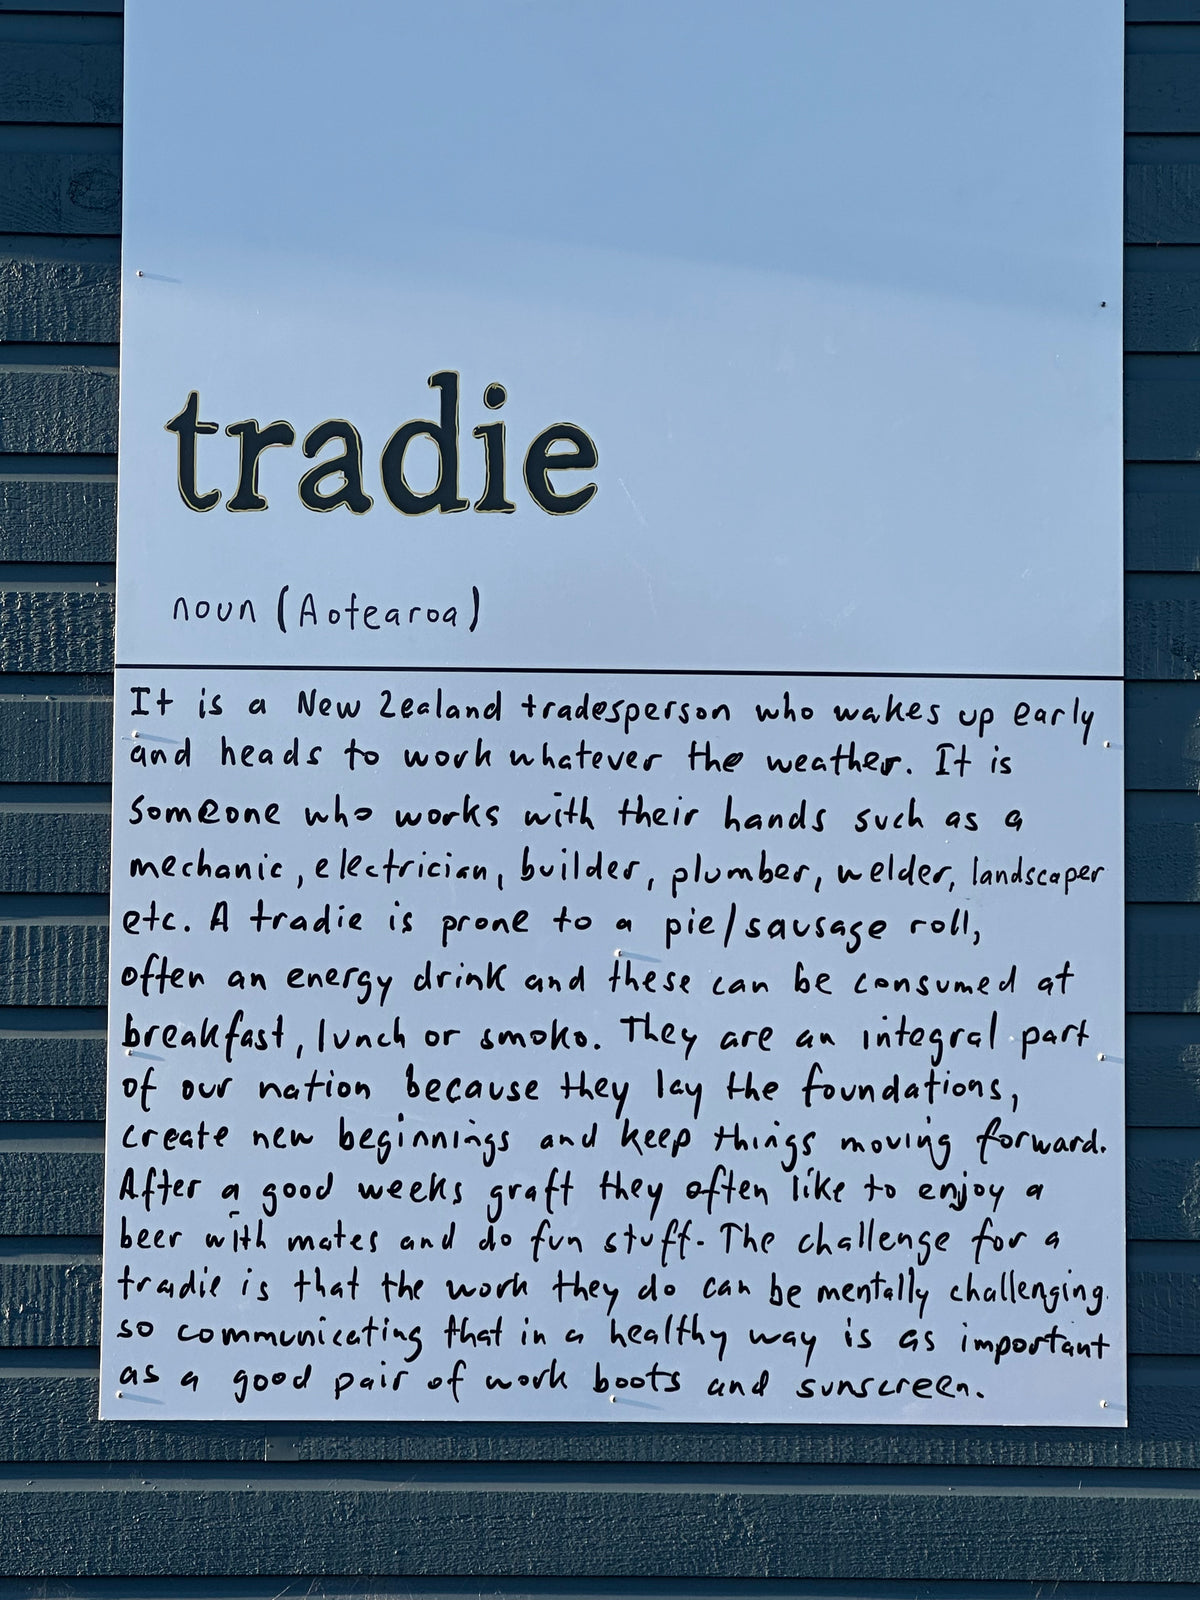 tradie
noun (Aotearoa)
It is a New Zealand tradesperson who wakes up early
and heads to work whatever the weather. It is
someone who works with their hands such as a
mechanic, electrician, builder, plumber, welder, landscaper
etc. A tradie is prone to a pie/sausage roll,
often an energy drink and these can be consumed at
breakfast, lunch or smoko. They are an integral part
of our nation because they lay the foundations,
create new beginnings and keep things moving forward.
After a good weeks graft they often like to enjoy a
beer with mates and do fun stuff. The challenge for a
tradie is that the work they do can be mentally challenging
so communicating that in a healthy way is as important
as a good pair of work boots and sunscreen.